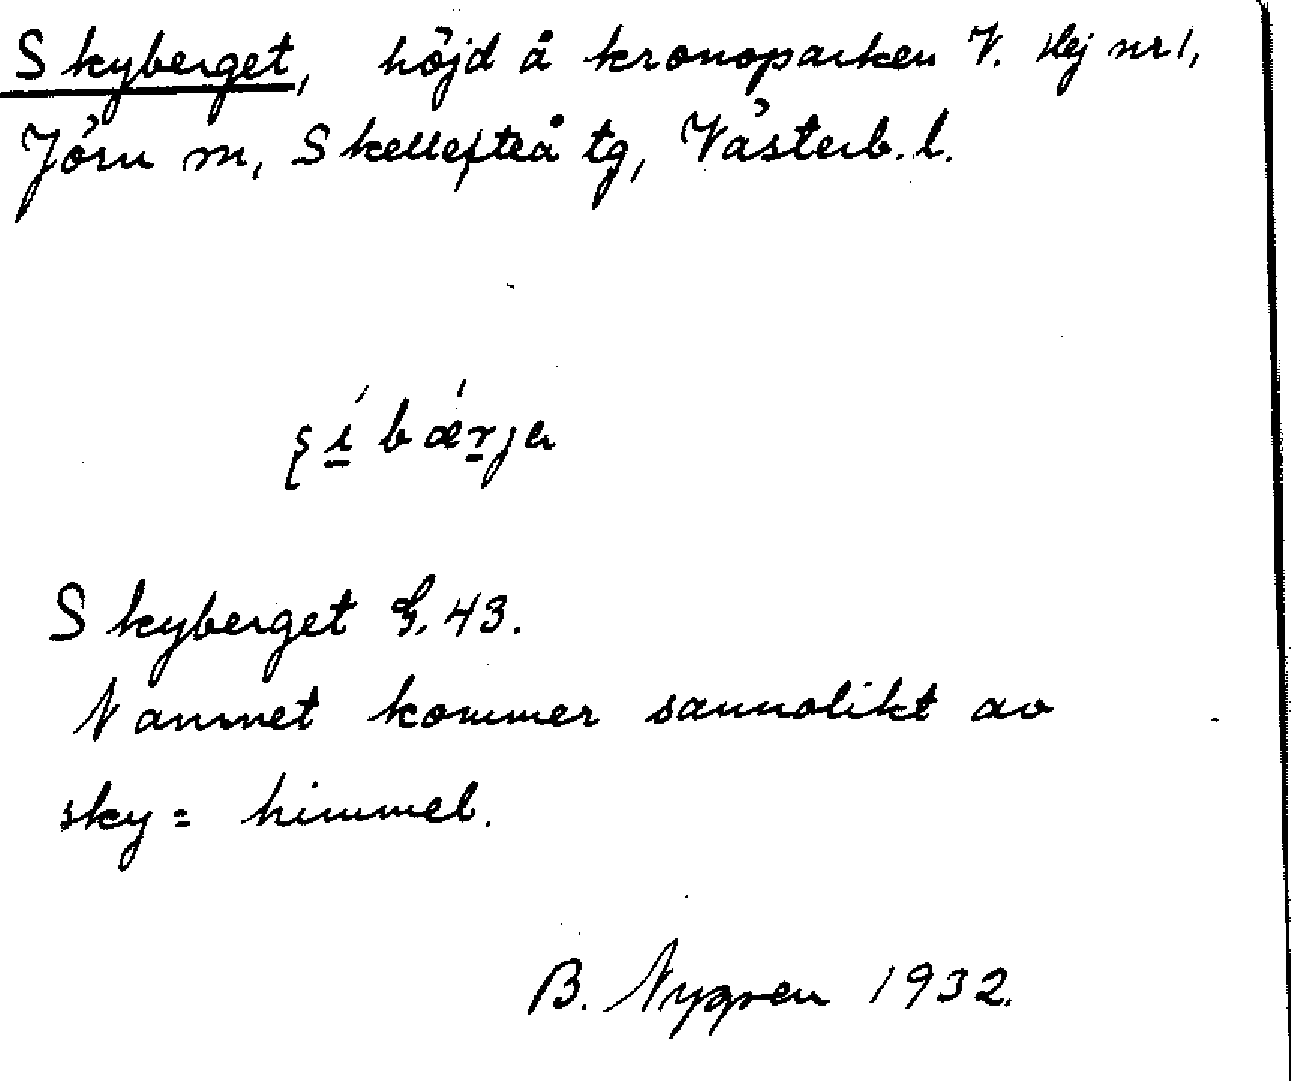 Skyberget, höjd å kronoparken V. Hej nr 1,
Jörn sn, Skellefteå tg, Västerb. l.
bǽrja
Skyberget G. 43.
Namnet kommer sannolikt av
sky = himmel.
B. Nygren 1932.